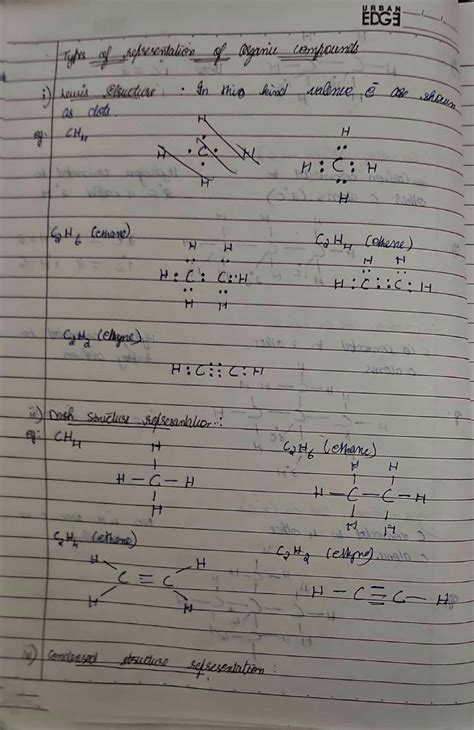 URBAN
EDGE
Types of representation of Organic compounds
i) Lewis Structure : In this kind valence e are shown
as dots.
eg: CH4
H
C
H
H
H
H : C : H
H
C2H6 (ethane)
C2H4 (ethene)
H H
H : C : C : H
H H
H H
H : C :: C : H
C2H2 (ethyne)
H : C ::: C : H
ii) Dash Structure representation :
eg: CH4
C2H6 (ethane)
H
H – C – H
H
H H
H – C – C – H
H H
C2H4 (ethene)
C2H2 (ethyne)
H H
C = C
H H
H – C ≡ C – H
iii) Condensed structure representation :